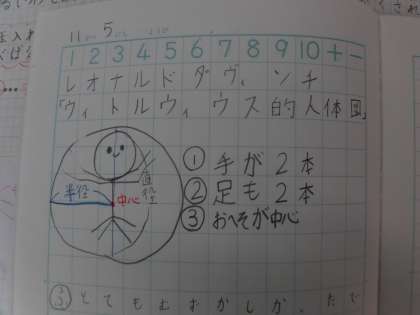 11 5
1 2 3 4 5 6 7 8 9 10 + −
レオナルドダヴィンチ
「ウィトルウィウス的人体図」
①手が2本
直径
半径
②足も2本
中心
③おへそが中心
③とてもむずかしか、たで